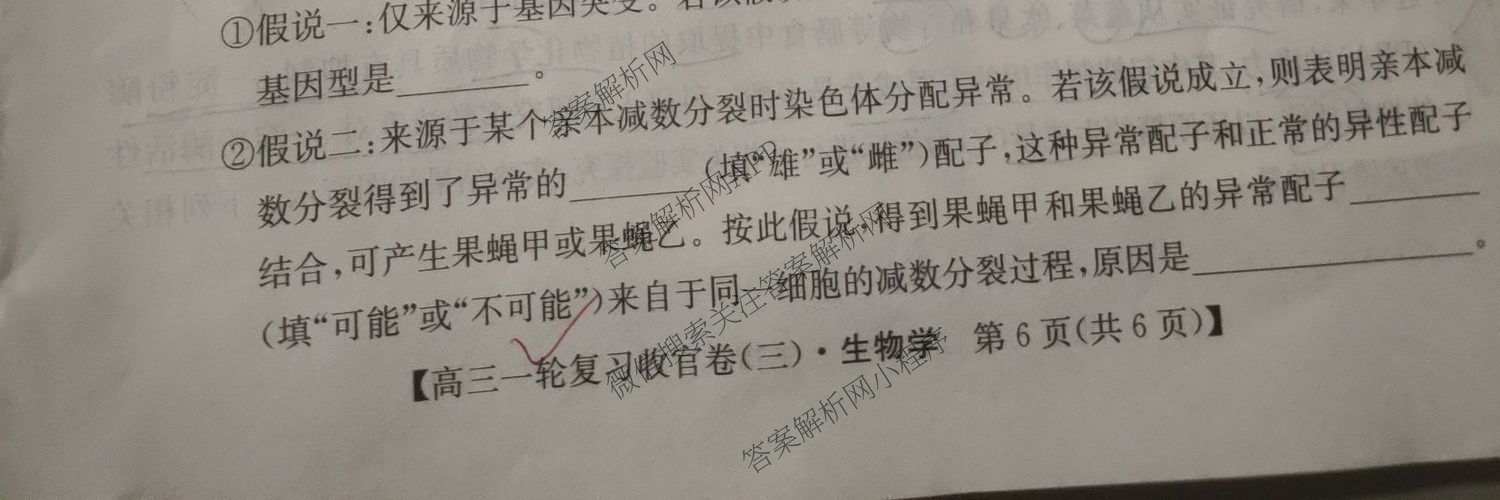 ①假说一:仅来源于基因突变。若该假
基因型是________。
②假说二:来源于某个亲本减数分裂时染色体分配异常。若该假说成立,则表明亲本减
数分裂得到了异常的________(填“雄”或“雌”)配子,这种异常配子和正常的异性配子
结合,可产生果蝇甲或果蝇乙。按此假说,得到果蝇甲和果蝇乙的异常配子________
(填“可能”或“不可能”)来自于同一细胞的减数分裂过程,原因是________________。
【高三一轮复习收官卷(三)·生物学 第6页(共6页)】
答案解析网
答案解析网APP
微信搜索关注答案解析网
答案解析网小程序